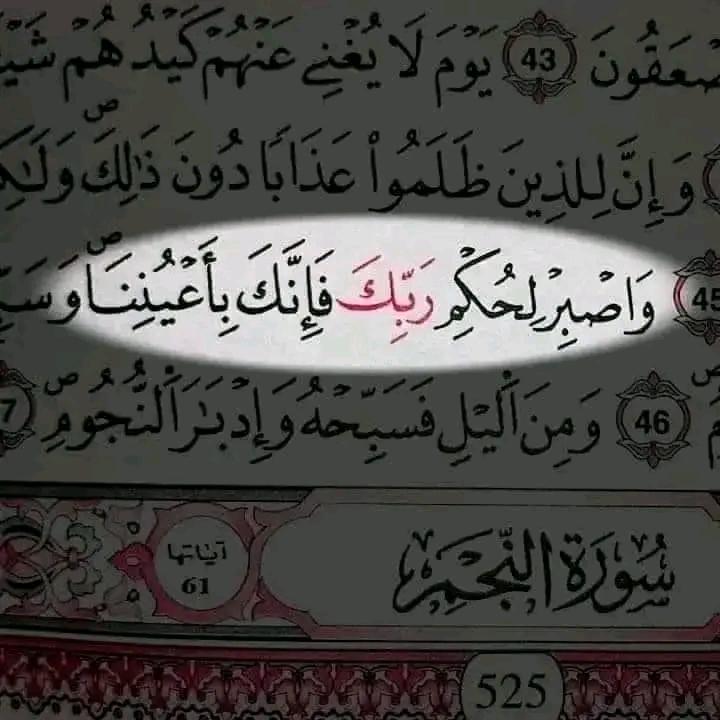 صْعَقُونَ 43 يَوْمَ لَا يُغْنِے عَنْهُمْ كَيْدُهُمْ شَيْـ
وَإِنَّ لِلذِينَ ظَلَمُواْ عَذَابًا دُونَ ذَٰلِكَ ۖ وَلَٰكِ
45 وَاصْبِرْ لِحُكْمِ رَبِّكَ فَإِنَّكَ بِأَعْيُنِنَا ۖ وَسَبِّ
46 وَمِنَ اَليْلِ فَسَبِّحْهُ وَإِدْبَٰرَ اَلنُّجُومِ ۖ 7
سُورَةُ النَّجْمِ
آيَاتها
61
525